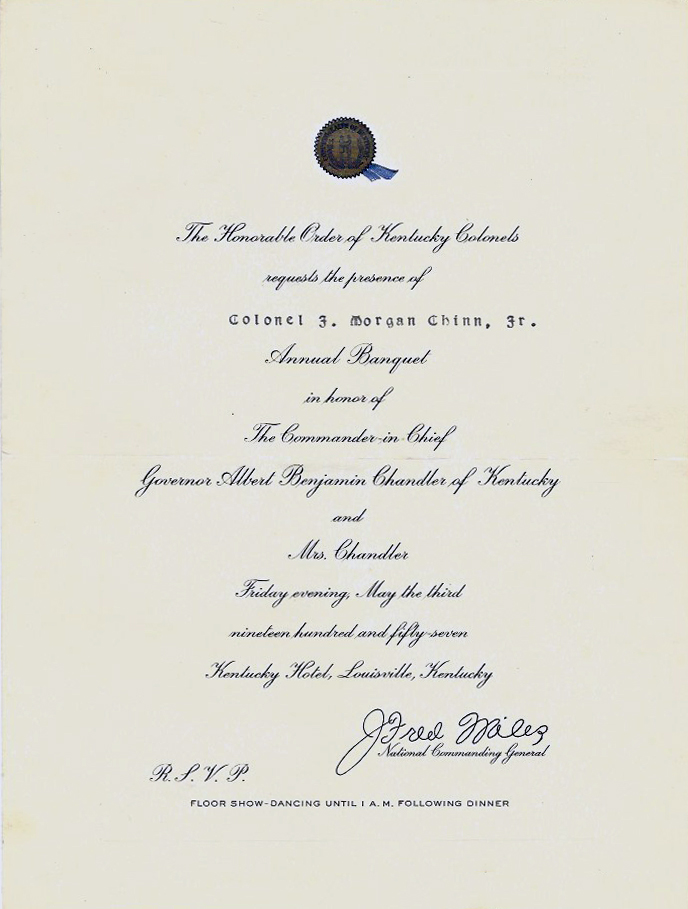 The Honorable Order of Kentucky Colonels
requests the presence of
Colonel J. Morgan Chinn, Jr.
Annual Banquet
in honor of
The Commander-in-Chief
Governor Albert Benjamin Chandler of Kentucky
and
Mrs. Chandler
Friday evening, May the third
nineteen hundred and fifty-seven
Kentucky Hotel, Louisville, Kentucky
J Fred Miles
National Commanding General
R. S. V. P.
FLOOR SHOW-DANCING UNTIL 1 A.M. FOLLOWING DINNER